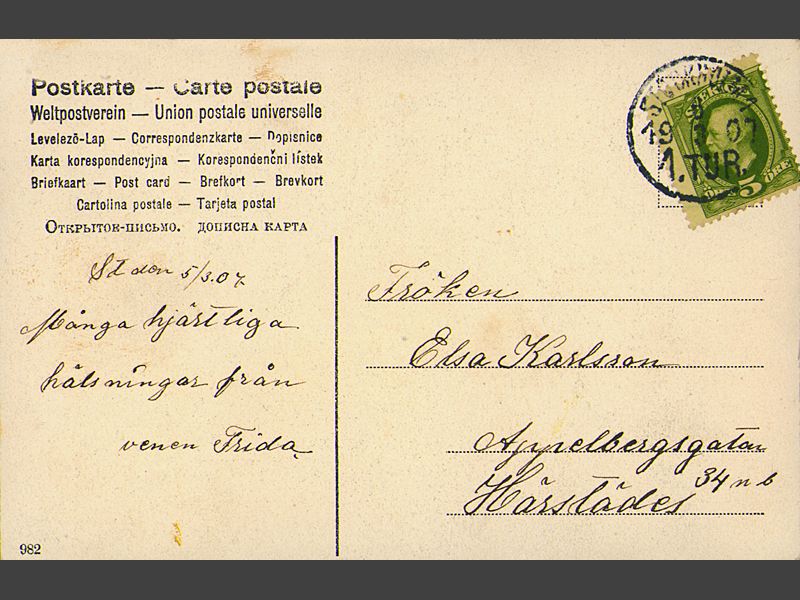 Postkarte — Carte postale
Weltpostverein — Union postale universelle
Levelező-Lap — Correspondenzkarte — Dopisnice
Karta korespondencyjna — Korespondenční lístek
Briefkaart — Post card — Brefkort — Brevkort
Cartolina postale — Tarjeta postal
Открытое-письмо. дописна карта
St den 5/3.07.
Många hjärtliga
hälsningar från
venen Frida
STOCKHOLM
19 3 07
1.TUR.
5 ÖRE
Fröken
Elsa Karlsson
Appelbergsgatan
34 n b
Härstädes
982